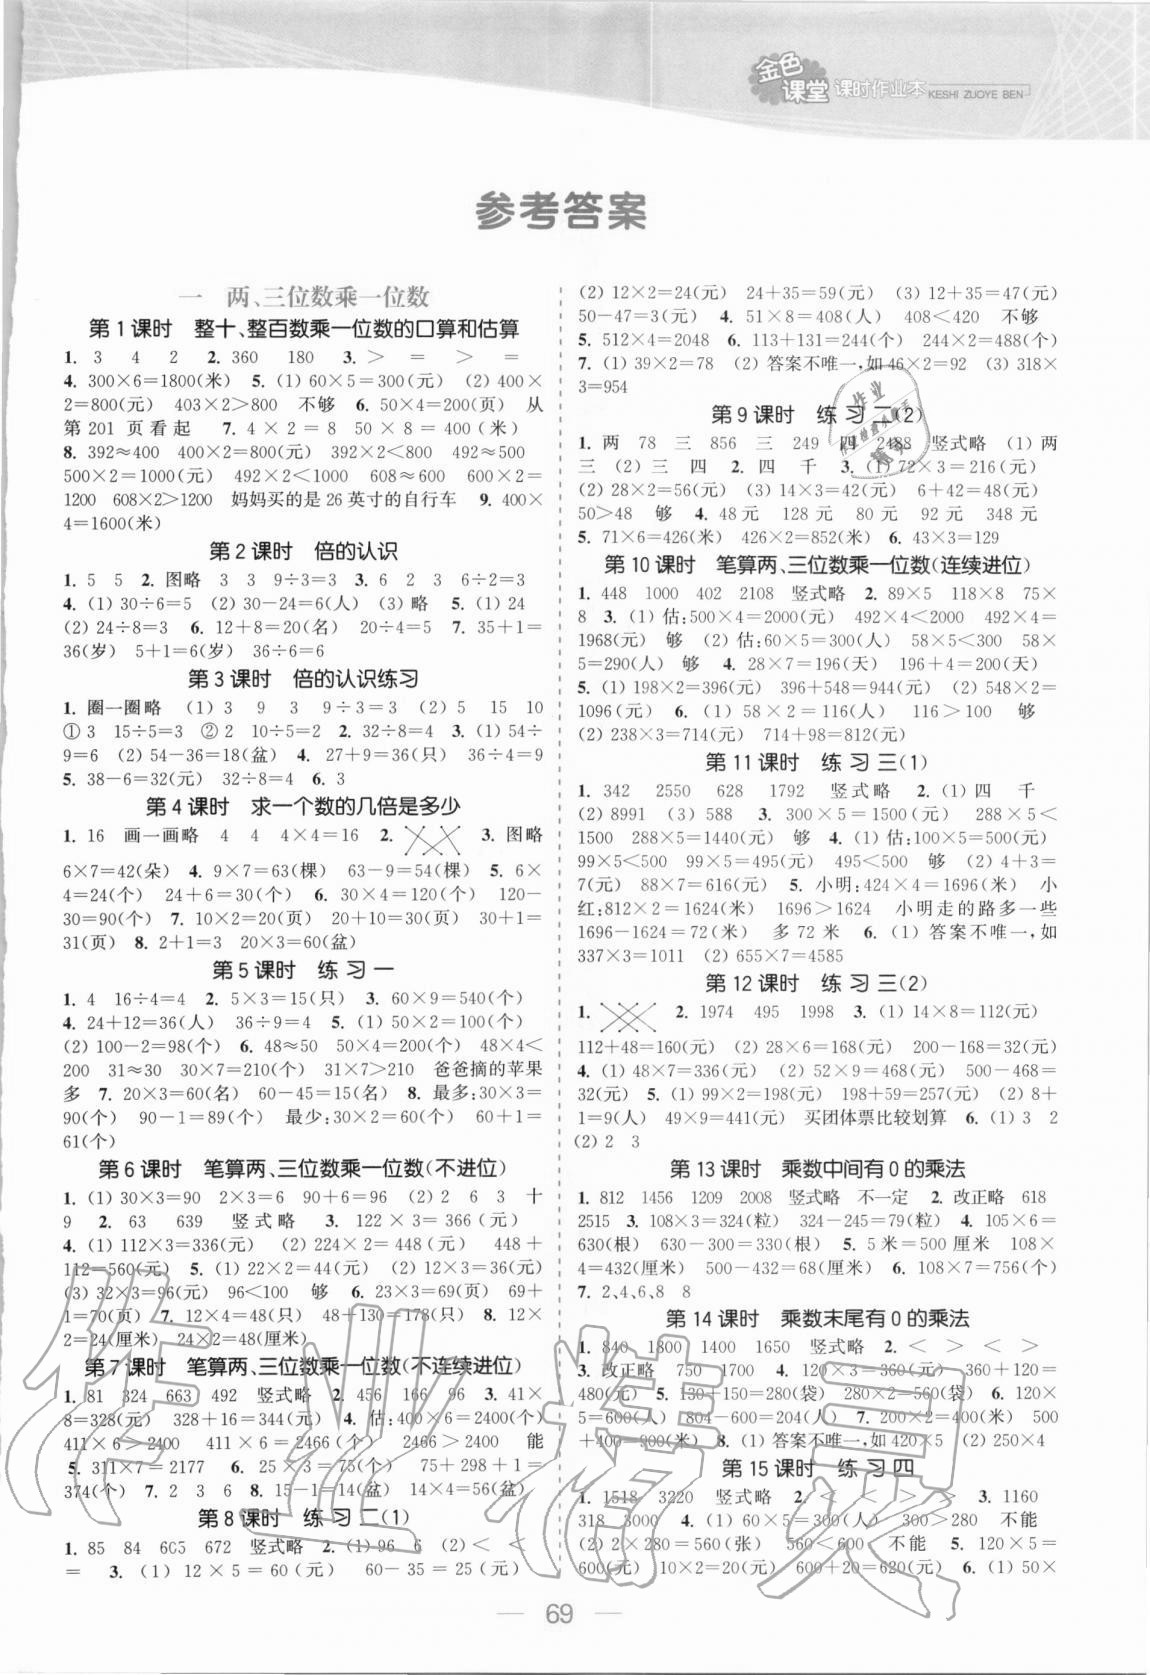 金色课堂 课时作业本 KESHI ZUOYE BEN
参考答案
一 两、三位数乘一位数
第1课时 整十、整百数乘一位数的口算和估算
1. 3 4 2 2. 360 180 3. > = > =
4. 300×6=1800(米) 5. (1) 60×5=300(元) (2) 400×
2=800(元) 403×2>800 不够 6. 50×4=200(页) 从
第 201 页看起 7. 4×2=8 50×8=400(米)
8. 392≈400 400×2=800(元) 392×2<800 492≈500
500×2=1000(元) 492×2<1000 608≈600 600×2=
1200 608×2>1200 妈妈买的是 26 英寸的自行车 9. 400×
4=1600(米)
第2课时 倍的认识
1. 5 5 2. 图略 3 3 9÷3=3 3. 6 2 3 6÷2=3
4. (1) 30÷6=5 (2) 30-24=6(人) (3) 略 5. (1) 24
(2) 24÷8=3 6. 12+8=20(名) 20÷4=5 7. 35+1=
36(岁) 5+1=6(岁) 36÷6=6
第3课时 倍的认识练习
1. 圈一圈略 (1) 3 9 3 9÷3=3 (2) 5 15 10
① 3 15÷5=3 ② 2 10÷5=2 2. 32÷8=4 3. (1) 54÷
9=6 (2) 54-36=18(盆) 4. 27+9=36(只) 36÷4=9
5. 38-6=32(元) 32÷8=4 6. 3
第4课时 求一个数的几倍是多少
1. 16 画一画略 4 4 4×4=16 2. 3. 图略
6×7=42(朵) 4. 9×7=63(棵) 63-9=54(棵) 5. 6×
4=24(个) 24+6=30(个) 6. 30×4=120(个) 120-
30=90(个) 7. 10×2=20(页) 20+10=30(页) 30+1=
31(页) 8. 2+1=3 20×3=60(盆)
第5课时 练习一
1. 4 16÷4=4 2. 5×3=15(只) 3. 60×9=540(个)
4. 24+12=36(人) 36÷9=4 5. (1) 50×2=100(个)
(2) 100-2=98(个) 6. 48≈50 50×4=200(个) 48×4<
200 31≈30 30×7=210(个) 31×7>210 爸爸摘的苹果
多 7. 20×3=60(名) 60-45=15(名) 8. 最多:30×3=
90(个) 90-1=89(个) 最少:30×2=60(个) 60+1=
61(个)
第6课时 笔算两、三位数乘一位数(不进位)
1. (1) 30×3=90 2×3=6 90+6=96 (2) 2 6 3 十
9 2. 63 639 竖式略 3. 122×3=366(元)
4. (1) 112×3=336(元) (2) 224×2=448(元) 448+
112=560(元) 5. (1) 22×2=44(元) (2) 12×3=36(元)
(3) 32×3=96(元) 96<100 够 6. 23×3=69(页) 69+
1=70(页) 7. 12×4=48(只) 48+130=178(只) 8. 12×
2=24(厘米) 24×2=48(厘米)
第7课时 笔算两、三位数乘一位数(不连续进位)
1. 81 324 663 492 竖式略 2. 456 166 96 3. 41×
8=328(元) 328+16=344(元) 4. 估:400×6=2400(个)
411×6>2400 411×6=2466(个) 2466>2400 能
5. 311×7=2177 6. 25×3=75(个) 75+298+1=
374(个) 7. 2 3 6 8. 15-1=14(盆) 14×4=56(盆)
第8课时 练习二(1)
1. 85 84 605 672 竖式略 2. (1) 96 6 (2) < < <
= 3. (1) 12×5=60(元) 60-35=25(元)
(2) 12×2=24(元) 24+35=59(元) (3) 12+35=47(元)
50-47=3(元) 4. 51×8=408(人) 408<420 不够
5. 512×4=2048 6. 113+131=244(个) 244×2=488(个)
7. (1) 39×2=78 (2) 答案不唯一,如 46×2=92 (3) 318×
3=954
第9课时 练习二(2)
1. 两 78 三 856 三 249 四 2488 竖式略 (1) 两
三 (2) 三 四 2. 四 千 3. (1) 72×3=216(元)
(2) 28×2=56(元) (3) 14×3=42(元) 6+42=48(元)
50>48 够 4. 48 元 128 元 80 元 92 元 348 元
5. 71×6=426(米) 426×2=852(米) 6. 43×3=129
第10课时 笔算两、三位数乘一位数(连续进位)
1. 448 1000 402 2108 竖式略 2. 89×5 118×8 75×
8 3. (1) 估:500×4=2000(元) 492×4<2000 492×4=
1968(元) 够 (2) 估:60×5=300(人) 58×5<300 58×
5=290(人) 够 4. 28×7=196(天) 196+4=200(天)
5. (1) 198×2=396(元) 396+548=944(元) (2) 548×2=
1096(元) 6. (1) 58×2=116(人) 116>100 够
(2) 238×3=714(元) 714+98=812(元)
第11课时 练习三(1)
1. 342 2550 628 1792 竖式略 2. (1) 四 千
(2) 8991 (3) 588 3. 300×5=1500(元) 288×5<
1500 288×5=1440(元) 够 4. (1) 估:100×5=500(元)
99×5<500 99×5=495(元) 495<500 够 (2) 4+3=
7(元) 88×7=616(元) 5. 小明:424×4=1696(米) 小
红:812×2=1624(米) 1696>1624 小明走的路多一些
1696-1624=72(米) 多 72 米 6. (1) 答案不唯一,如
337×3=1011 (2) 655×7=4585
第12课时 练习三(2)
1. 2. 1974 495 1998 3. (1) 14×8=112(元)
112+48=160(元) (2) 28×6=168(元) 200-168=32(元)
4. (1) 48×7=336(元) (2) 52×9=468(元) 500-468=
32(元) 5. (1) 99×2=198(元) 198+59=257(元) (2) 8+
1=9(人) 49×9=441(元) 买团体票比较划算 6. (1) 3 2
(2) 2 3
第13课时 乘数中间有0的乘法
1. 812 1456 1209 2008 竖式略 不一定 2. 改正略 618
2515 3. 108×3=324(粒) 324-245=79(粒) 4. 105×6=
630(根) 630-300=330(根) 5. 5 米=500 厘米 108×
4=432(厘米) 500-432=68(厘米) 6. 108×7=756(个)
7. 2、4、6、8 8
第14课时 乘数末尾有0的乘法
1. 840 1800 1400 1650 竖式略 2. < > < >
3. 改正略 750 1700 4. 120×3=360(元) 360+120=
480(元) 5. 130+150=280(袋) 280×2=560(袋) 6. 120×
5=600(人) 804-600=204(人) 7. 200×2=400(米) 500
+400=900(米) 8. (1) 答案不唯一,如 420×5 (2) 250×4
第15课时 练习四
1. 1518 3220 竖式略 2. < < > > 3. 1160
318 3000 4. (1) 60×5=300(元) 300>280 不能
(2) 2×280=560(张) 560<600 不能 5. 120×5=
600(元) 10×2=20(元) 600+20=620(元) 6. (1) 50×
69
作业精灵